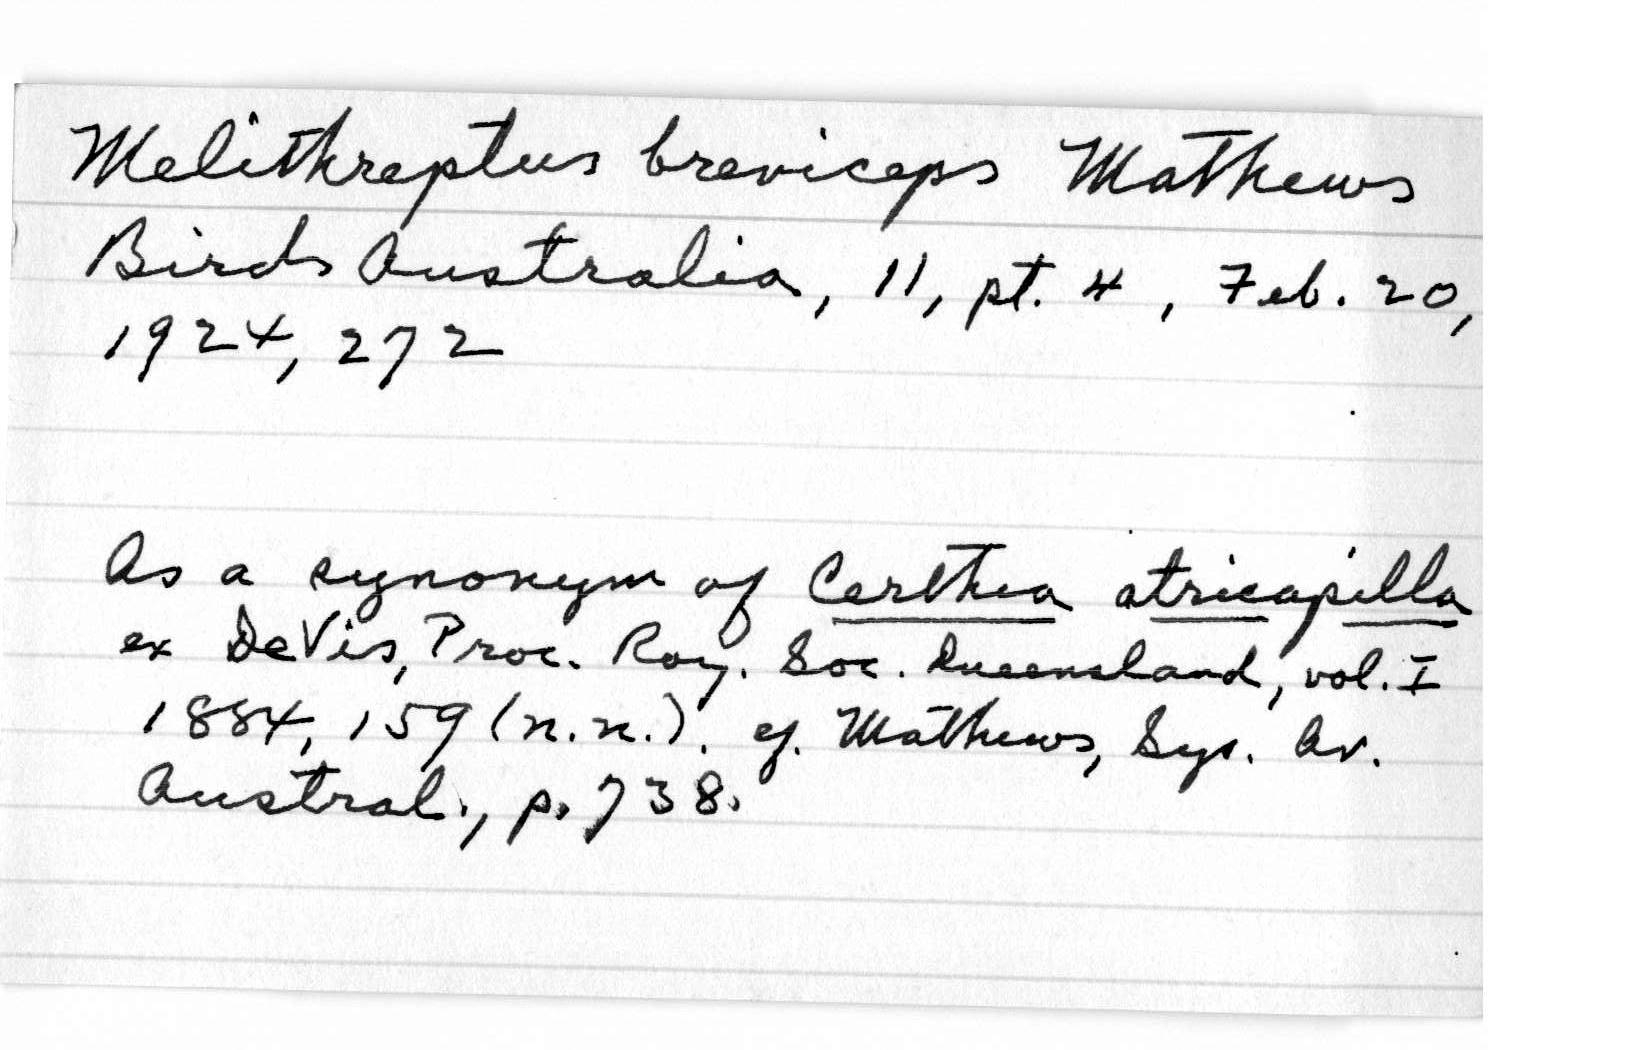 Melithreptus breviceps Mathews
Birds Australia, 11, pt. 4, Feb. 20,
1924, 272
As a synonym of Certhia atricapilla
ex DeVis, Proc. Roy. Soc. Queensland, vol. I
1884, 159 (n.n.). cf. Mathews, Sys. Av.
Austral., p. 738.